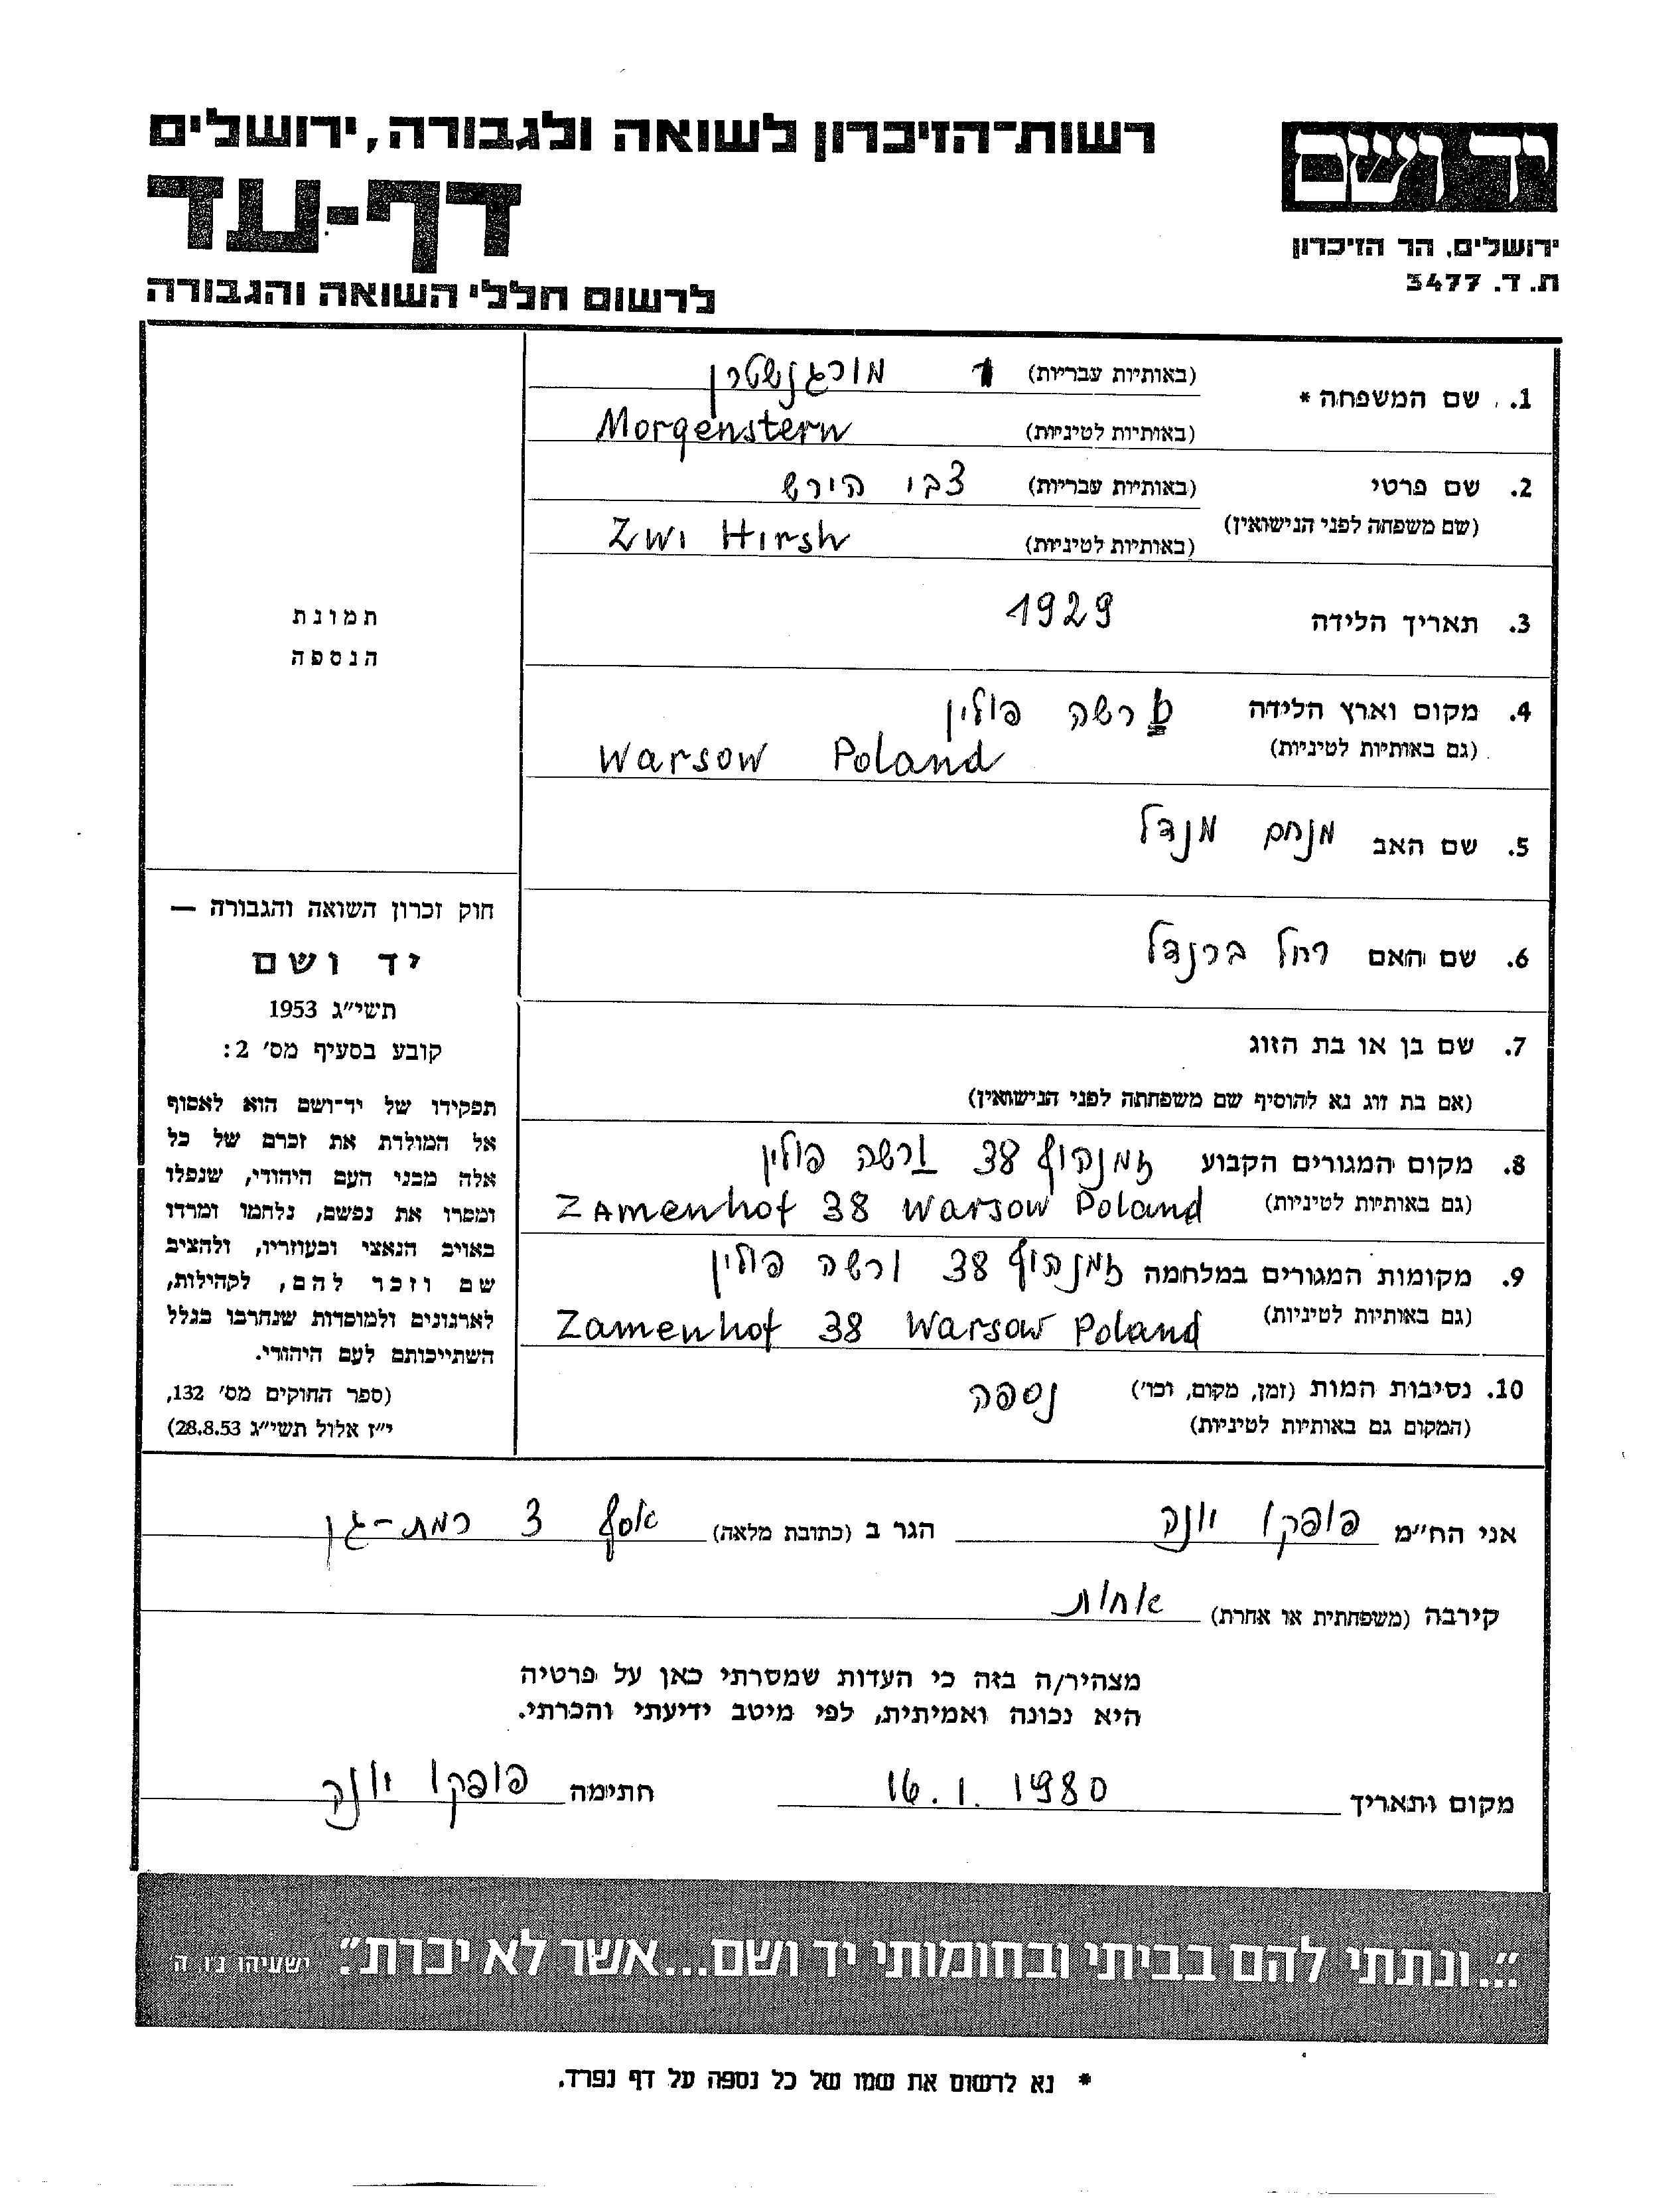 רשות-הזיכרון לשואה ולגבורה, ירושלים
דף-עד
לרשום חללי השואה והגבורה
יד ושם
ירושלים, הר הזיכרון
ת. ד. 3477
1. שם המשפחה * (באותיות עבריות) מורגנשטרן
(באותיות לטיניות) Morgenstern
2. שם פרטי (באותיות עבריות) צבי הירש
(שם משפחה לפני הנישואין) (באותיות לטיניות) Zwi Hirsh
3. תאריך הלידה 1929
4. מקום וארץ הלידה ורשה פולין
(גם באותיות לטיניות) Warsow Poland
5. שם האב מנחם מנדל
6. שם האם רחל ברנדל
7. שם בן או בת הזוג
(אם בת זוג נא להוסיף שם משפחתה לפני הנישואין)
8. מקום המגורים הקבוע זמנהוף 38 ורשה פולין
(גם באותיות לטיניות) Zamenhof 38 Warsow Poland
9. מקומות המגורים במלחמה זמנהוף 38 ורשה פולין
(גם באותיות לטיניות) Zamenhof 38 Warsow Poland
10. נסיבות המות (זמן, מקום, וכו') נספה
(המקום גם באותיות לטיניות)
תמונת
הנספה
חוק זכרון השואה והגבורה —
יד ושם
תשי"ג 1953
קובע בסעיף מס' 2:
תפקידו של יד-ושם הוא לאסוף
אל המולדת את זכרם של כל
אלה מבני העם היהודי, שנפלו
ומסרו את נפשם, נלחמו ומרדו
באויב הנאצי ובעוזריו, ולהציב
שם וזכר להם, לקהילות,
לארגונים ולמוסדות שנחרבו בגלל
השתייכותם לעם היהודי.
(ספר החוקים מס' 132,
י"ז אלול תשי"ג 28.8.53)
אני הח"מ פופקו יונה הגר ב (כתובת מלאה) אסף 3 רמת-גן
קירבה (משפחתית או אחרת) אחות
מצהיר/ה בזה כי העדות שמסרתי כאן על פרטיה
היא נכונה ואמיתית, לפי מיטב ידיעתי והכרתי.
מקום ותאריך 16.1.1980 חתימה פופקו יונה
"...ונתתי להם בביתי ובחומותי יד ושם...אשר לא יכרת". ישעיהו נ"ו, ה'
* נא לרשום את שמו של כל נספה על דף נפרד.